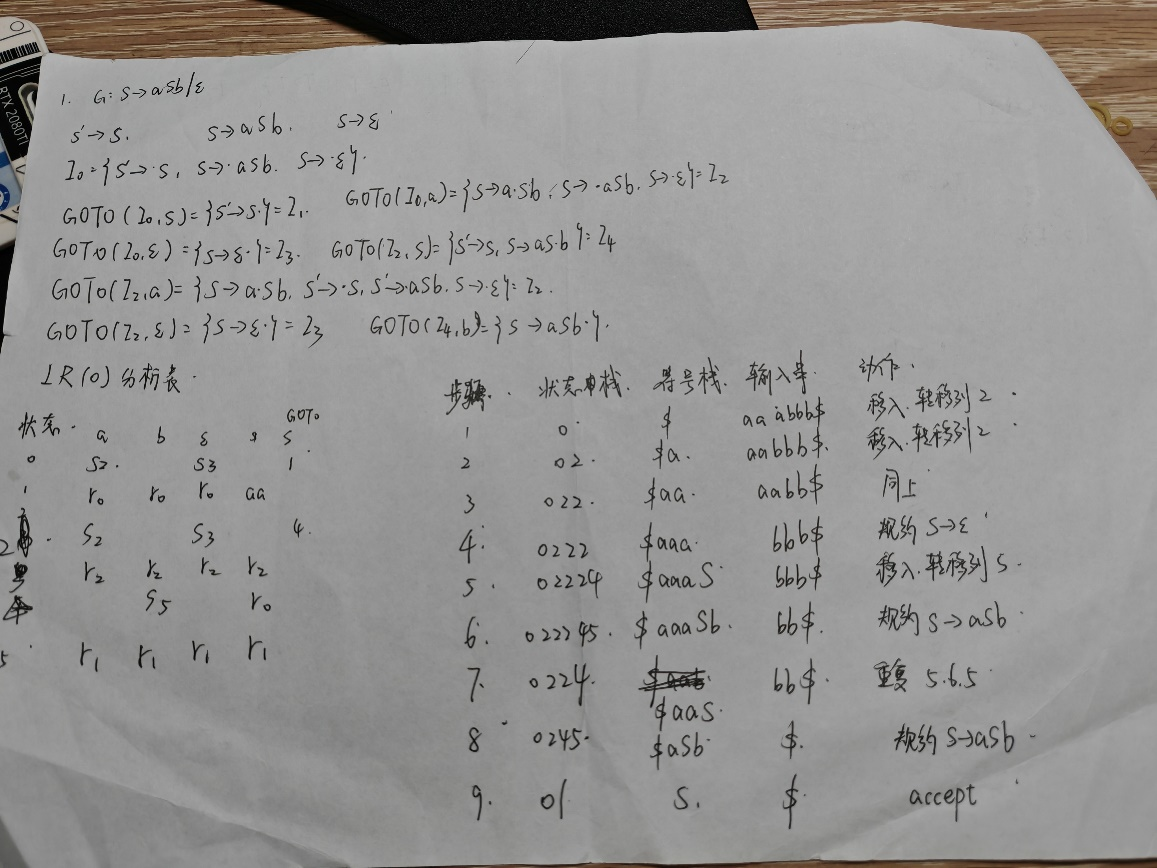 RTX 2080TI
1. G: S→aSb/ε
S'→S. S→aSb. S→ε
I₀={S'→·S, S→·aSb. S→·ε}.
GOTO(I₀,S)={S'→S·}=I₁. GOTO(I₀,a)={S→a·Sb, S→·aSb, S→·ε}=I₂
GOTO(I₀,ε)={S→ε·}=I₃. GOTO(I₂,S)={S'→S, S→aS·b}=I₄
GOTO(I₂,a)={S→a·Sb, S'→·S, S'→·aSb. S→·ε}=I₂.
GOTO(I₂,ε)={S→ε·}=I₃ GOTO(I₄,b)={S→aSb·}.
LR(0)分析表.
状态. a b ε $ GOTO S
0 S2. S3 1
1 r0 r0 r0 aa
2 S2 S3 4.
r2 r2 r2 r2
S5 r0
5 r1 r1 r1 r1
步骤. 状态栈. 符号栈. 输入串. 动作.
1 0. $ aaabbb$ 移入.转移到2.
2 02. $a. aabbb$. 移入.转移到2
3 022. $aa. aabb$ 同上
4. 0222 $aaa. bbb$ 规约S→ε
5. 02224 $aaaS bbb$ 移入.转移到5.
6. 022245. $aaaSb. bb$. 规约S→aSb
7. 0224. $aaS. bb$. 重复5.6.5
8 0245. $aSb $. 规约S→aSb
9. 01 S. $ accept